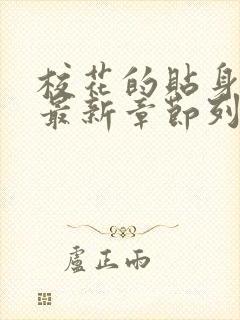 校花的貼身
最新章節列
盧正雨